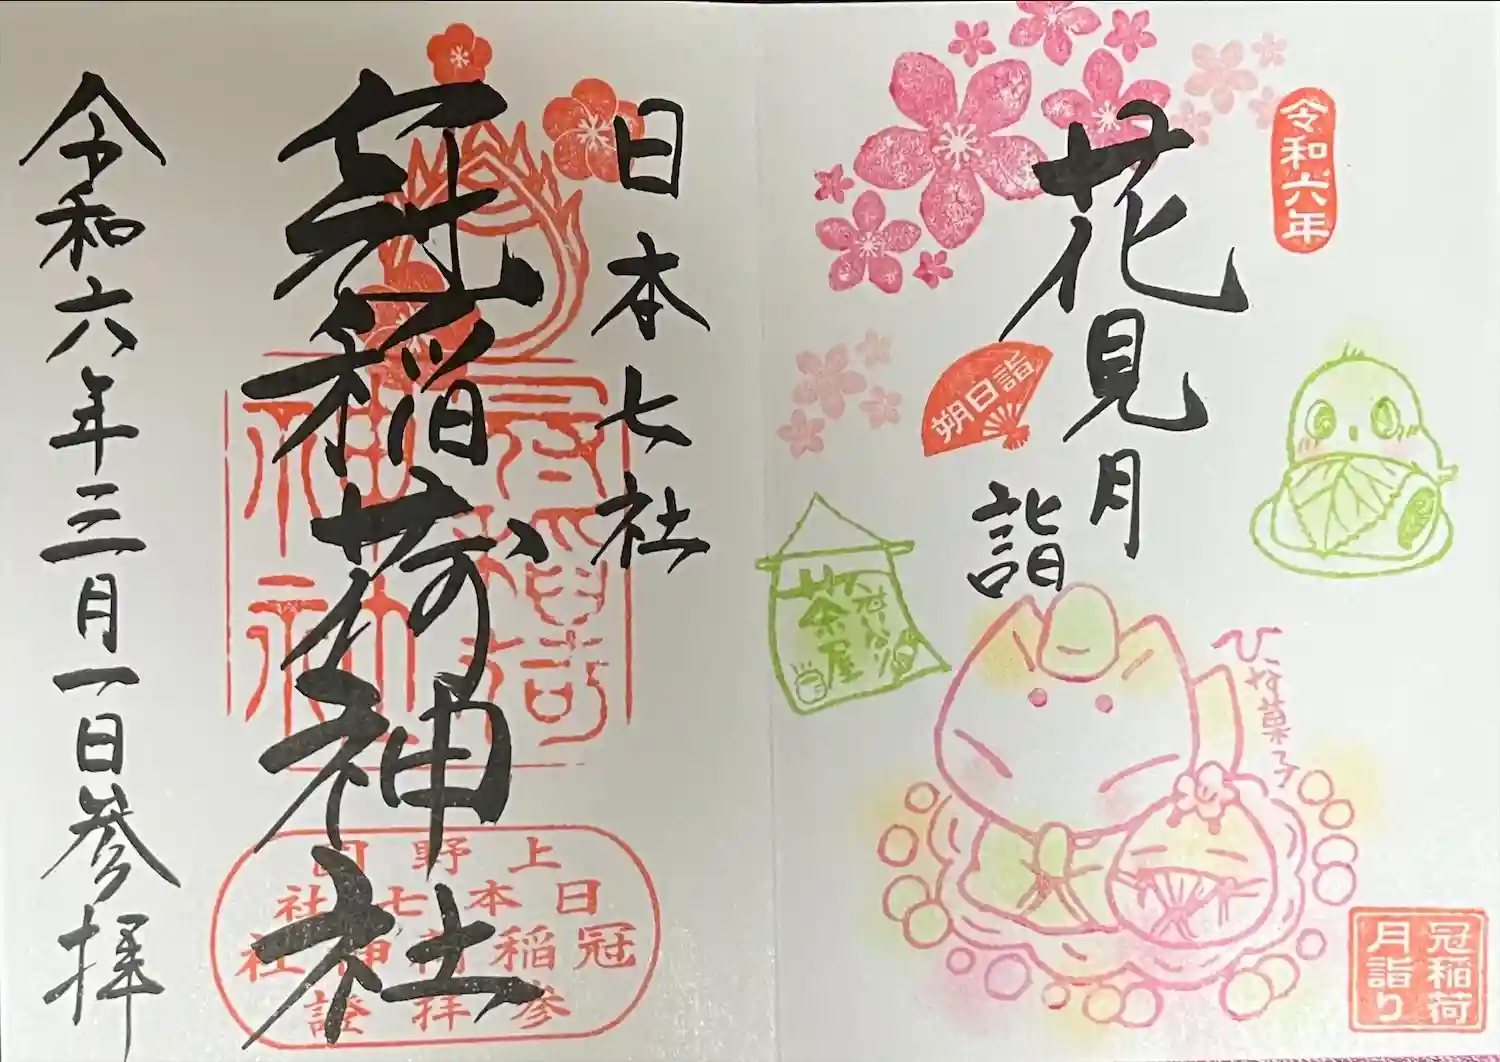 令和六年
花見月
詣
朔日詣
茶屋
ひな菓子
冠稲荷
月詣り
日本七社
冠稲荷神社
上野國
日本七社
冠稲荷神社
参拝證
令和六年三月一日参拝